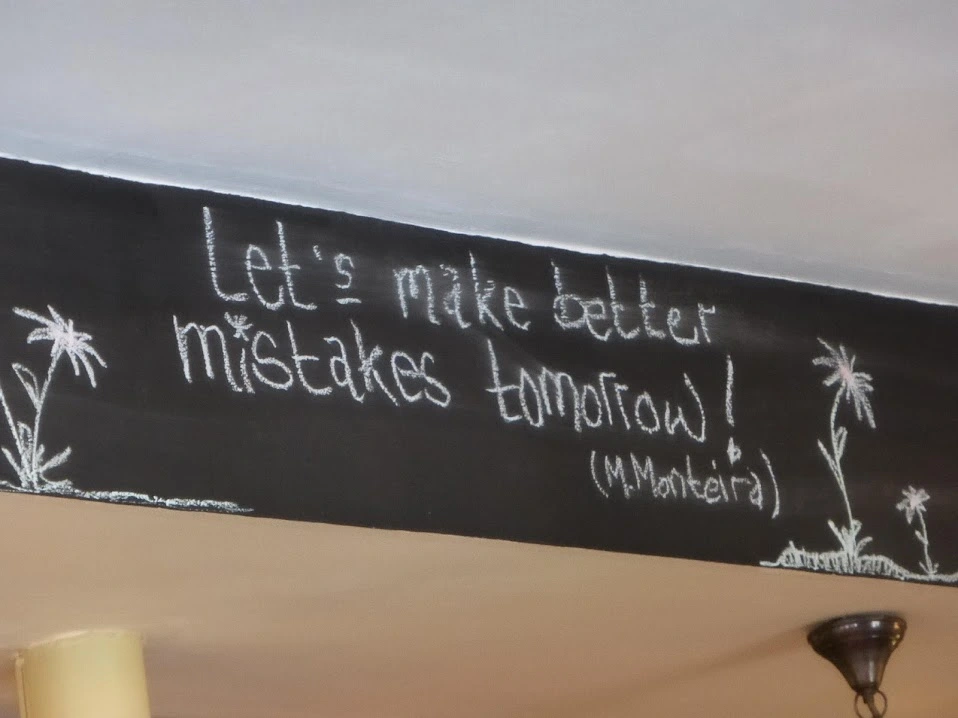 Let's make better
mistakes tomorrow!
(M.Monteira)